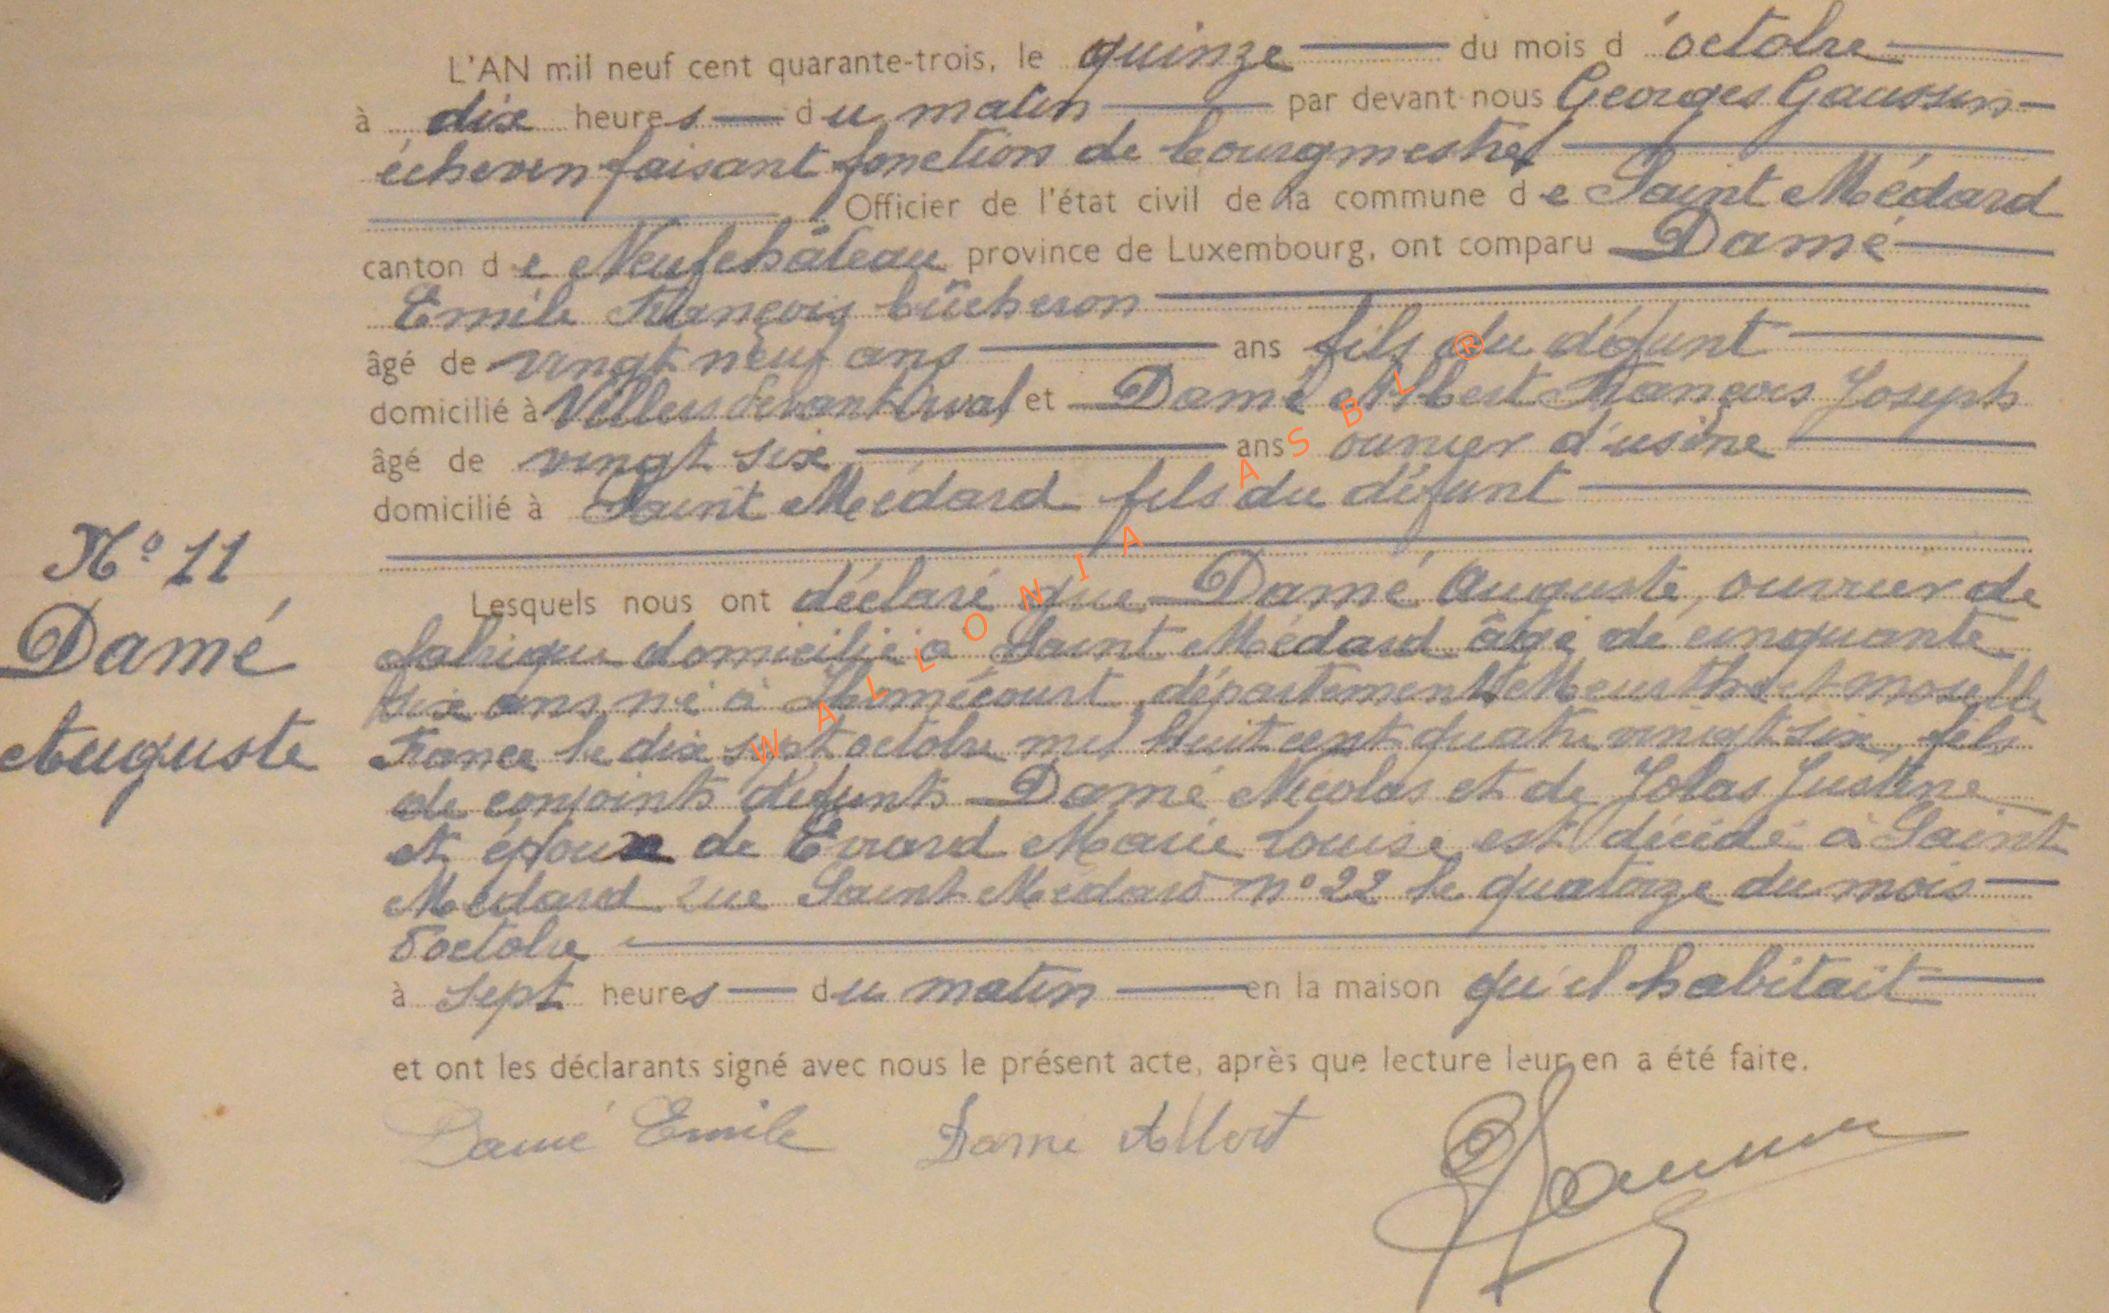 L'AN mil neuf cent quarante-trois, le quinze du mois d'octobre
à dix heures du matin par devant nous Georges
échevin faisant fonction de bourgmestre
Officier de l'état civil de la commune de Saint Médard
canton de Neufchâteau province de Luxembourg, ont comparu Damé
Emile François bûcheron
âgé de vingt neuf ans ans fils du défunt
domicilié à Villers devant Orval et Damé Albert François Joseph
âgé de vingt six ans ouvrier d'usine
domicilié à Saint Médard fils du défunt
N° 11
Damé
Auguste
Lesquels nous ont déclaré que Damé Auguste, ouvrier de
fabrique domicilié à Saint Médard âgé de cinquante
six ans né à Homécourt département Meurthe et moselle
France le dix sept octobre mil huit cent quatre vingt six, fils
de conjoints défunts Damé Nicolas et de Jolas Justine
et époux de Evrard Marie Louise est décédé à Saint
Médard rue Saint Médard n° 22 le quatorze du mois
d'octobre
à sept heures du matin en la maison qu'il habitait
et ont les déclarants signé avec nous le présent acte, après que lecture leur en a été faite.
Damé Emile Damé Albert
WALLONIA ASBL ®